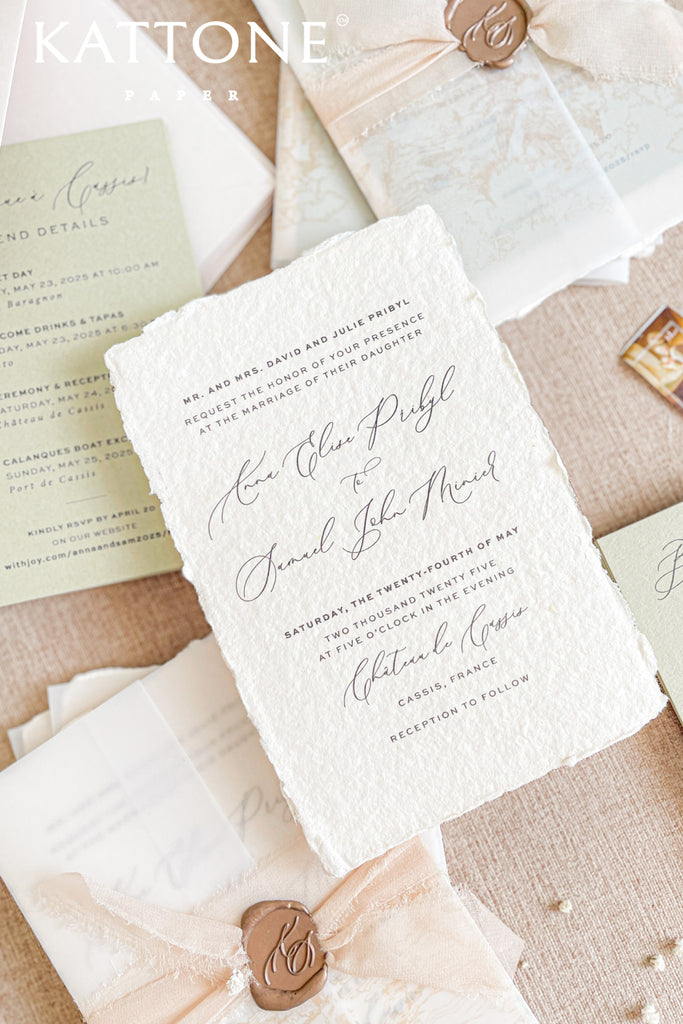 KATTONE
PAPER
Cassis!
END DETAILS
DAY
MAY 23, 2025 AT 10:00 AM
Baragnon
COME DRINKS & TAPAS
MAY 23, 2025 AT 6:3
CEREMONY & RECEPT
SATURDAY, MAY 24, 2
Château de Cassis
CALANQUES BOAT EXC
SUNDAY, MAY 25, 2025
Port de Cassis
KINDLY RSVP BY APRIL 20
ON OUR WEBSITE
withjoy.com/annaandsam2025/
MR. AND MRS. DAVID AND JULIE PRIBYL
REQUEST THE HONOR OF YOUR PRESENCE
AT THE MARRIAGE OF THEIR DAUGHTER
Anna Elise Pribyl
To
Samuel John Minier
SATURDAY, THE TWENTY-FOURTH OF MAY
TWO THOUSAND TWENTY FIVE
AT FIVE O'CLOCK IN THE EVENING
Château de Cassis
CASSIS, FRANCE
RECEPTION TO FOLLOW